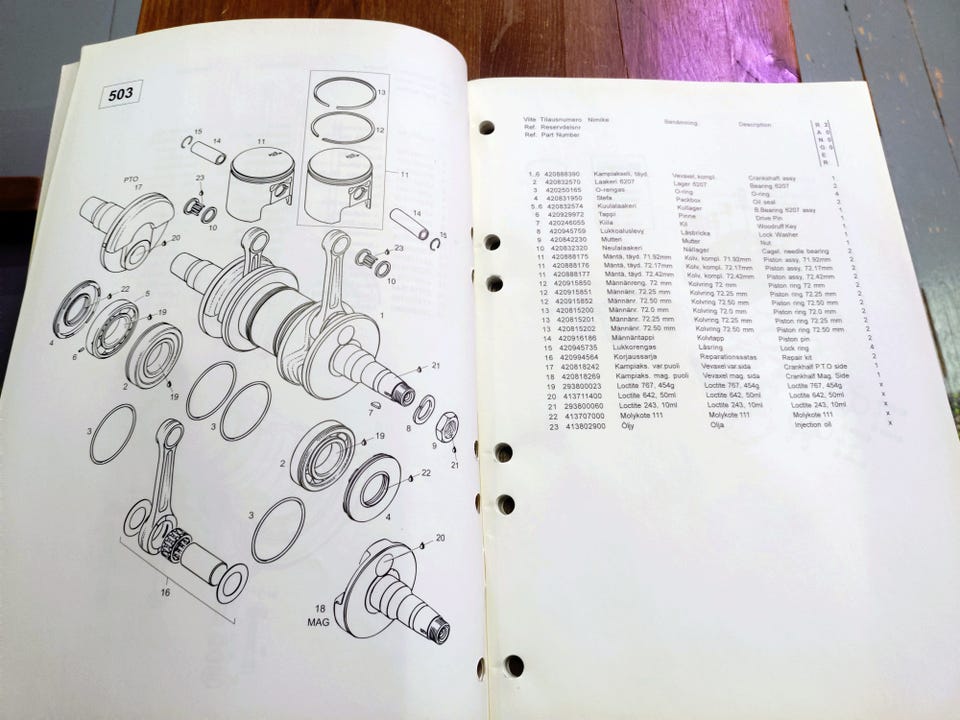 503
13
12
15
14
11
11
PTO
17
23
10
14
15
23
10
20
22
5
19
4
6
2
19
3
3
1
21
7
8
9
21
2
19
22
4
3
3
20
16
18
MAG
Viite Tilausnumero Nimike Benämning Description
Ref. Reservdelsnr
Ref. Part Number
RANGER
2000
1..6 420888390 Kampiakseli, täyd. Vevaxel, kompl. Crankshaft assy 1
2 420832570 Laakeri 6207 Lager 6207 Bearing 6207 2
3 420250165 O-rengas O-ring O-ring 4
4 420831950 Stefa Packbox Oil seal 2
5..6 420832574 Kuulalaakeri Kullager B.Bearing 6207 assy 1
6 420929972 Tappi Pinne Drive Pin 1
7 420246055 Kiila Kil Woodruff Key 1
8 420945759 Lukkoaluslevy Låsbricka Lock Washer 1
9 420842230 Mutteri Mutter Nut 1
10 420832320 Neulalaakeri Nållager Cagel. needle bearing 2
11 420888175 Mäntä, täyd. 71.92mm Kolv, kompl. 71.92mm Piston assy, 71.92mm 2
11 420888176 Mäntä, täyd. 72.17mm Kolv, kompl. 72.17mm Piston assy, 72.17mm 2
11 420888177 Mäntä, täyd. 72.42mm Kolv, kompl. 72.42mm Piston assy, 72.42mm 2
12 420915850 Männänreng. 72 mm Kolvring 72 mm Piston ring 72 mm 2
12 420915851 Männänr. 72.25 mm Kolvring 72.25 mm Piston ring 72.25 mm 2
12 420915852 Männänr. 72.50 mm Kolvring 72.50 mm Piston ring 72.50 mm 2
13 420815200 Männänr. 72.0 mm Kolvring 72.0 mm Piston ring 72.0 mm 2
13 420815201 Männänr. 72.25 mm Kolvring 72.25 mm Piston ring 72.25 mm 2
13 420815202 Männänr. 72.50 mm Kolvring 72.50 mm Piston ring 72.50 mm 2
14 420916186 Männäntappi Kolvtapp Piston pin 2
15 420945735 Lukkorengas Låsring Lock ring 4
16 420994564 Korjaussarja Reparationssatas Repair kit 2
17 420818242 Kampiaks. var.puoli Vevaxel var.sida Crankhalf P.T.O side 1
18 420818269 Kampiaks. mag. puoli Vevaxel mag. sida Crankhalf Mag. Side 1
19 293800023 Loctite 767, 454g Loctite 767, 454g Loctite 767, 454g x
20 413711400 Loctite 642, 50ml Loctite 642, 50ml Loctite 642, 50ml x
21 293800060 Loctite 243, 10ml Loctite 243, 10ml Loctite 243, 10ml x
22 413707000 Molykote 111 Molykote 111 Molykote 111 x
23 413802900 Öljy Olja Injection oil x